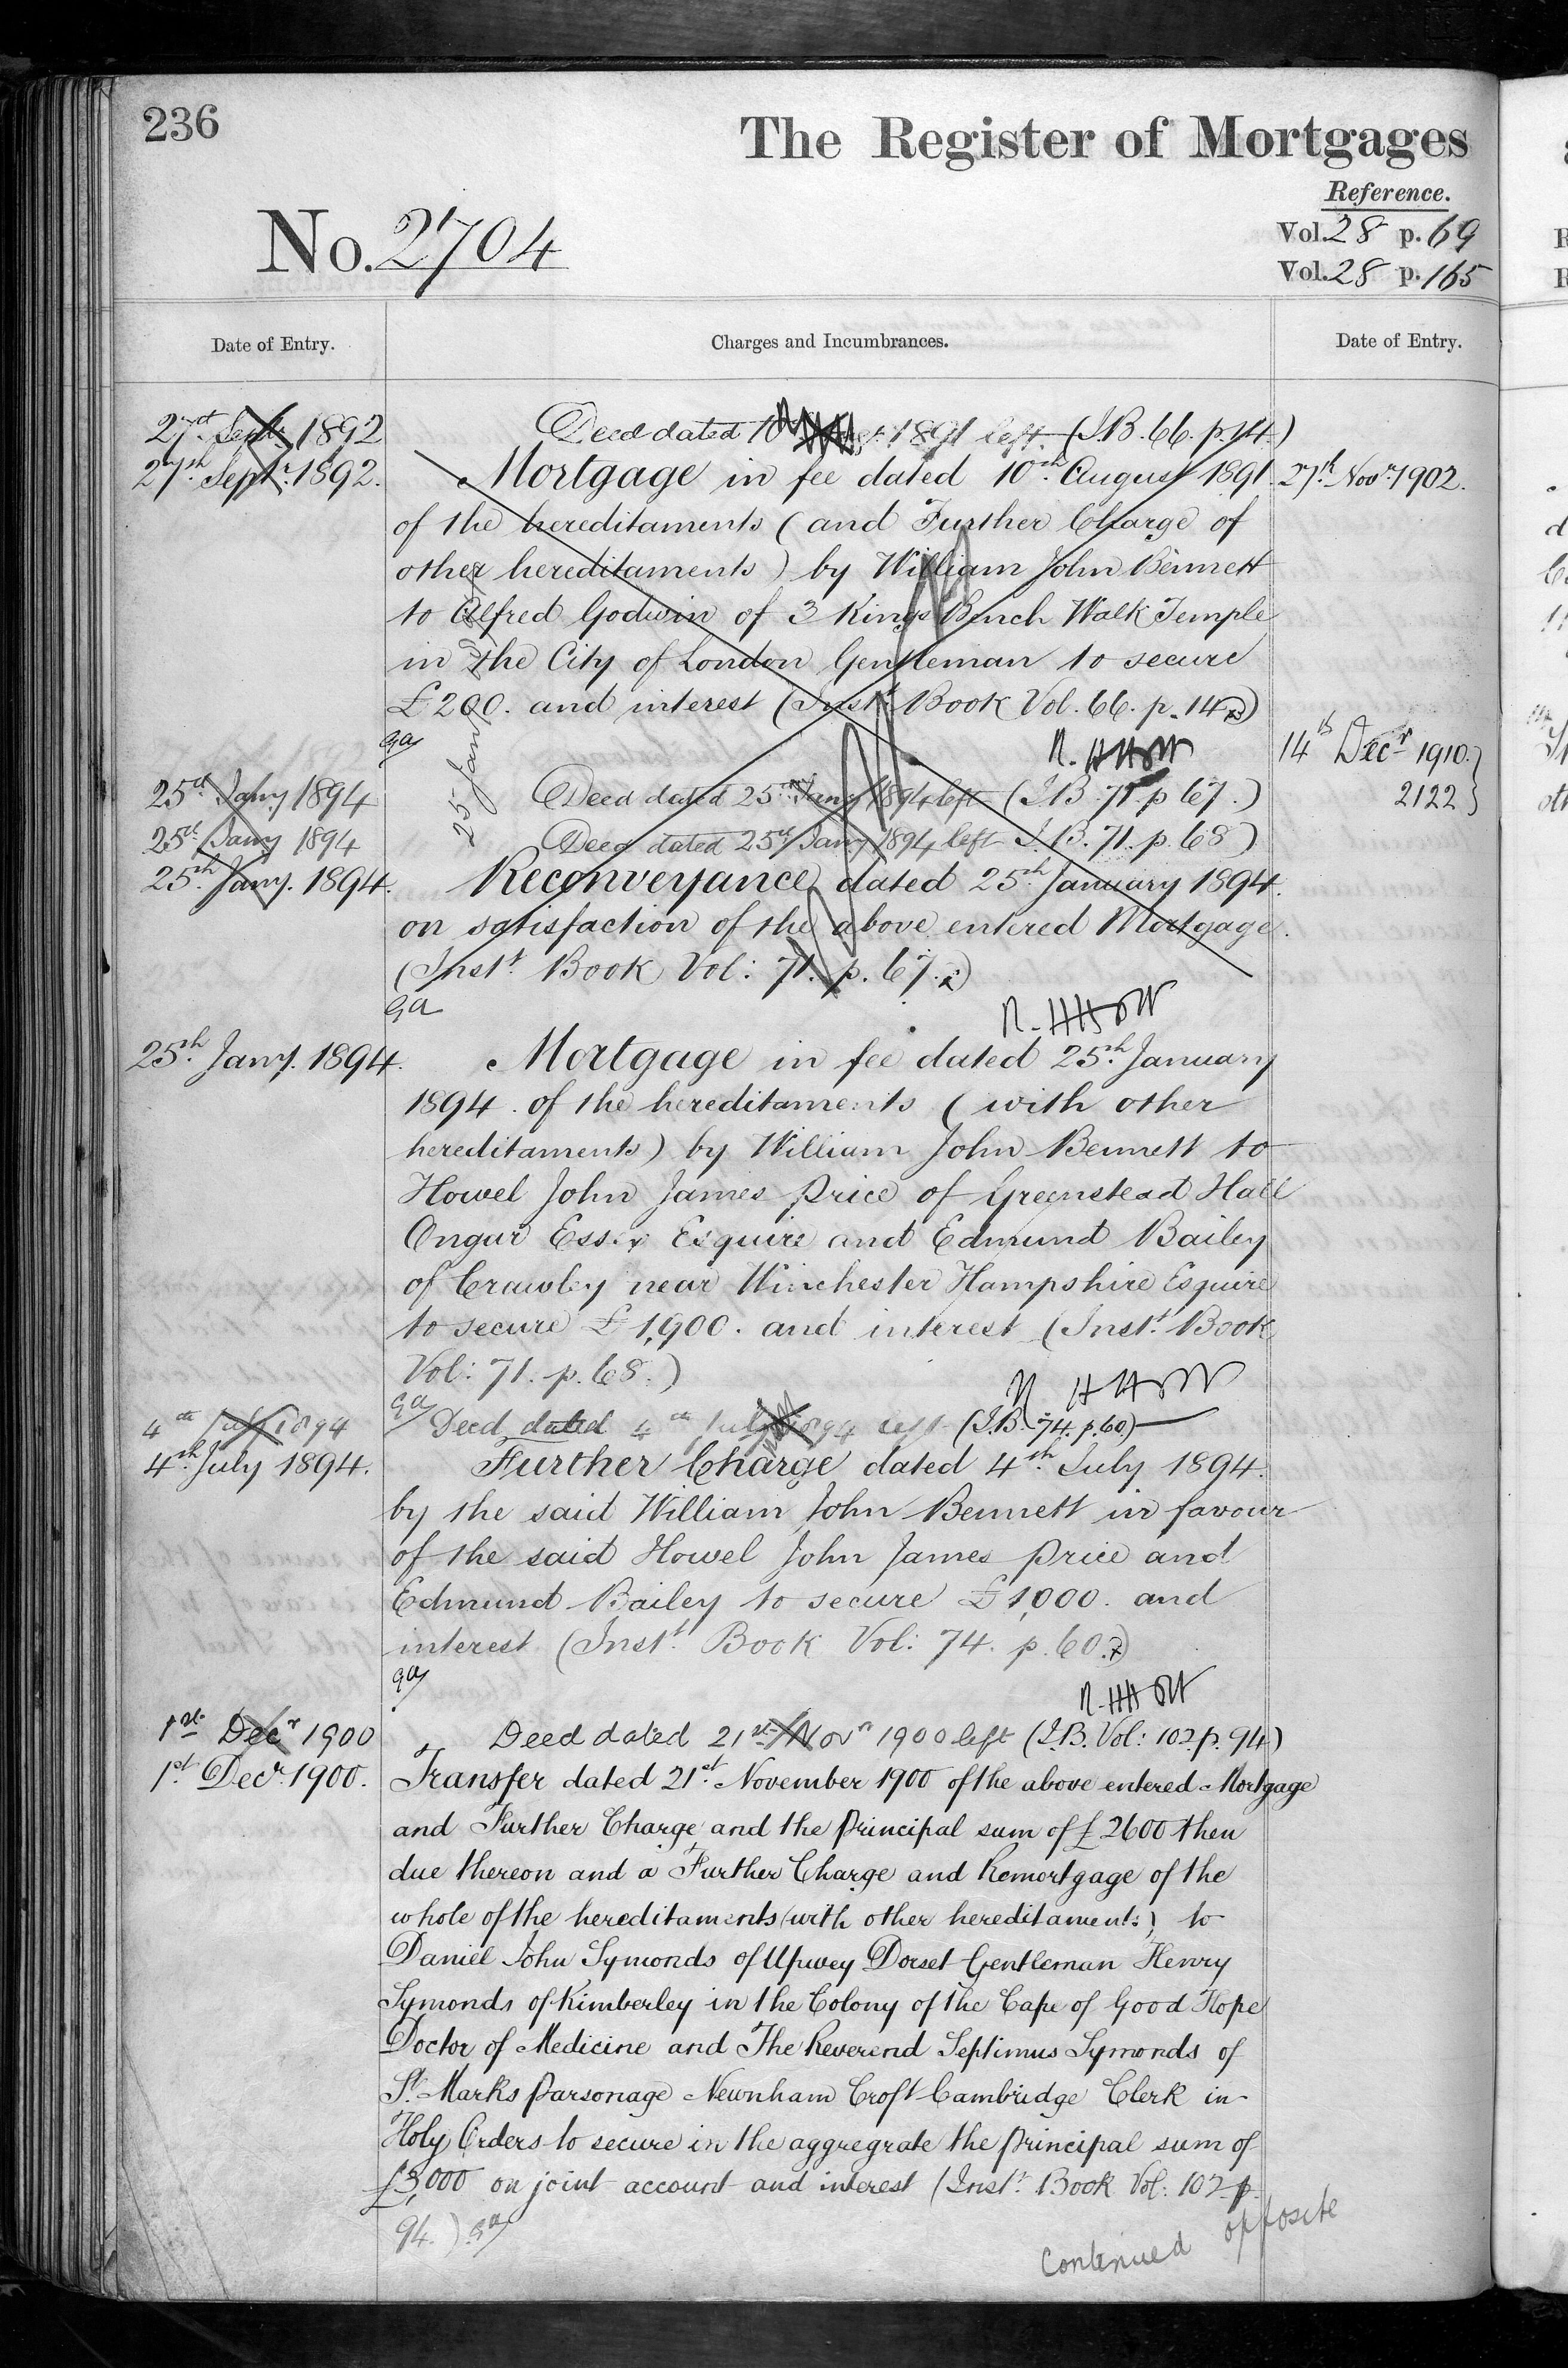 236
The Register of Mortgages
Reference.
No. 2704
Vol. 28 p. 69
Vol. 28 p. 165
Date of Entry.
Charges and Incumbrances.
Date of Entry.
27th Septr. 1892
Deed dated 10 1891 left (I.B. 66. p. 14)
27th Septr. 1892.
Mortgage in fee dated 10th August 1891.
27th Novr. 1902.
of the hereditaments (and Further Charge of
other hereditaments) by William John Bennett
to Alfred Godwin of 3 Kings Bench Walk Temple
in the City of London Gentleman to secure
£200. and interest (Inst. Book Vol. 66. p. 14)
25 Jany
14th Decr 1910.
2122
25th Jany 1894
Deed dated 25th Jany 1894 left (I.B. 71. p 67.)
25th Jany 1894
Deed dated 25th Jany 1894 left I.B. 71. p. 68)
25th Jany. 1894.
Reconveyance dated 25th January 1894.
on satisfaction of the above entered Mortgage.
(Inst. Book Vol: 71. p. 67.)
25th Jany. 1894.
Mortgage in fee dated 25th January
1894. of the hereditaments (with other
hereditaments) by William John Bennett to
Howel John James Price of Greenstead Hall
Ongar Essex Esquire and Edmund Bailey
of Crawley near Winchester Hampshire Esquire
to secure £1,900. and interest (Inst. Book
Vol: 71. p. 68.)
4th July 1894
Deed dated 4th July 1894 left (I.B. 74. p. 60.)
4th July 1894.
Further Charge dated 4th July 1894.
by the said William John Bennett in favour
of the said Howel John James Price and
Edmund Bailey to secure £1,000. and
interest (Inst. Book Vol: 74. p. 60.)
1st Decr 1900
Deed dated 21st Novr 1900 left (I.B. Vol: 102. p. 94)
1st Decr. 1900.
Transfer dated 21st November 1900 of the above entered Mortgage
and Further Charge and the principal sum of £2600 then
due thereon and a Further Charge and Remortgage of the
whole of the hereditaments (with other hereditaments) to
Daniel John Symonds of Upwey Dorset Gentleman Henry
Symonds of Kimberley in the Colony of the Cape of Good Hope
Doctor of Medicine and The Reverend Septimus Symonds of
St. Marks Parsonage Newnham Croft Cambridge Clerk in
Holy Orders to secure in the aggregrate the principal sum of
£3,000 on joint account and interest (Inst. Book Vol: 102 p.
94.)
Continued opposite